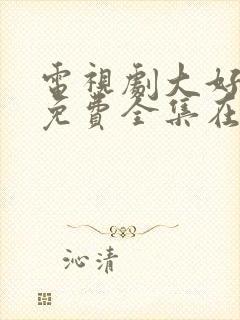 電視劇大好
免費全集在
沁清